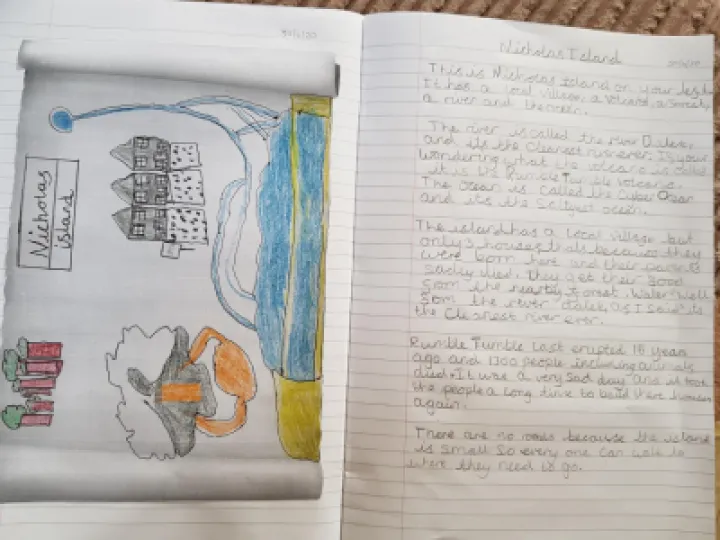 Nicholas
Island
Nicholas Island
This is Nicholas Island on your left
It has a local village, a volcano, a forest,
a river and the ocean.
The river is called the river
and its the cleanest river ever. If your
wondering what the volcano is called
it is the Rumble Tumble Volcano.
The Ocean is called the Cyber Ocean
and its the saltyest ocean.
The island has a local village but
only 3 houses that all because they
were born here and their parents
sadley died. They get their food
from the nearby forest. Water? Well
from the river as I said its
the cleanest river ever.
Rumble Tumble last erupted 15 years
ago and 1300 people including animals
died. It was a very sad day and it took
the people a long time to build there houses
again.
There are no roads because the island
is small so every one can walk to
where they need to go.